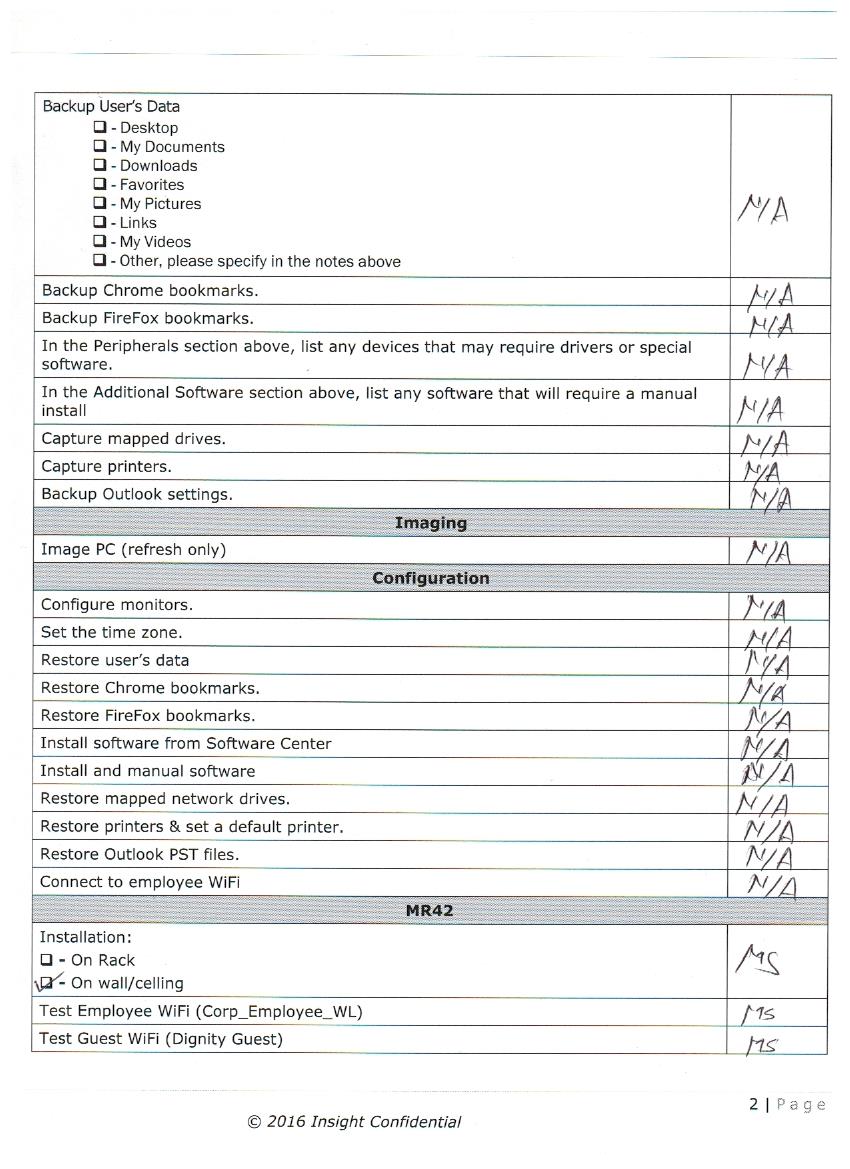 Backup User's Data
❑ - Desktop
❑ - My Documents
❑ - Downloads
❑ - Favorites
❑ - My Pictures
❑ - Links
❑ - My Videos
❑ - Other, please specify in the notes above
N/A
Backup Chrome bookmarks. N/A
Backup FireFox bookmarks. N/A
In the Peripherals section above, list any devices that may require drivers or special
software. N/A
In the Additional Software section above, list any software that will require a manual
install N/A
Capture mapped drives. N/A
Capture printers. N/A
Backup Outlook settings. N/A
Imaging
Image PC (refresh only) N/A
Configuration
Configure monitors. N/A
Set the time zone. N/A
Restore user's data N/A
Restore Chrome bookmarks. N/A
Restore FireFox bookmarks. N/A
Install software from Software Center N/A
Install and manual software N/A
Restore mapped network drives. N/A
Restore printers & set a default printer. N/A
Restore Outlook PST files. N/A
Connect to employee WiFi N/A
MR42
Installation:
❑ - On Rack MS
☑ - On wall/celling
Test Employee WiFi (Corp_Employee_WL) MS
Test Guest WiFi (Dignity Guest) MS
2 | Page
© 2016 Insight Confidential